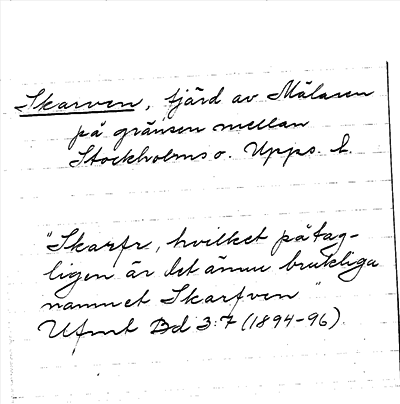 Skarven, fjärd av Mälaren
på gränsen mellan
Stockholms o. Upps. l.
"Skarfr, hvilket påtag-
ligen är det ännu brukliga
namnet Skarfven"
Ufmt Bd 3:7 (1894-96).